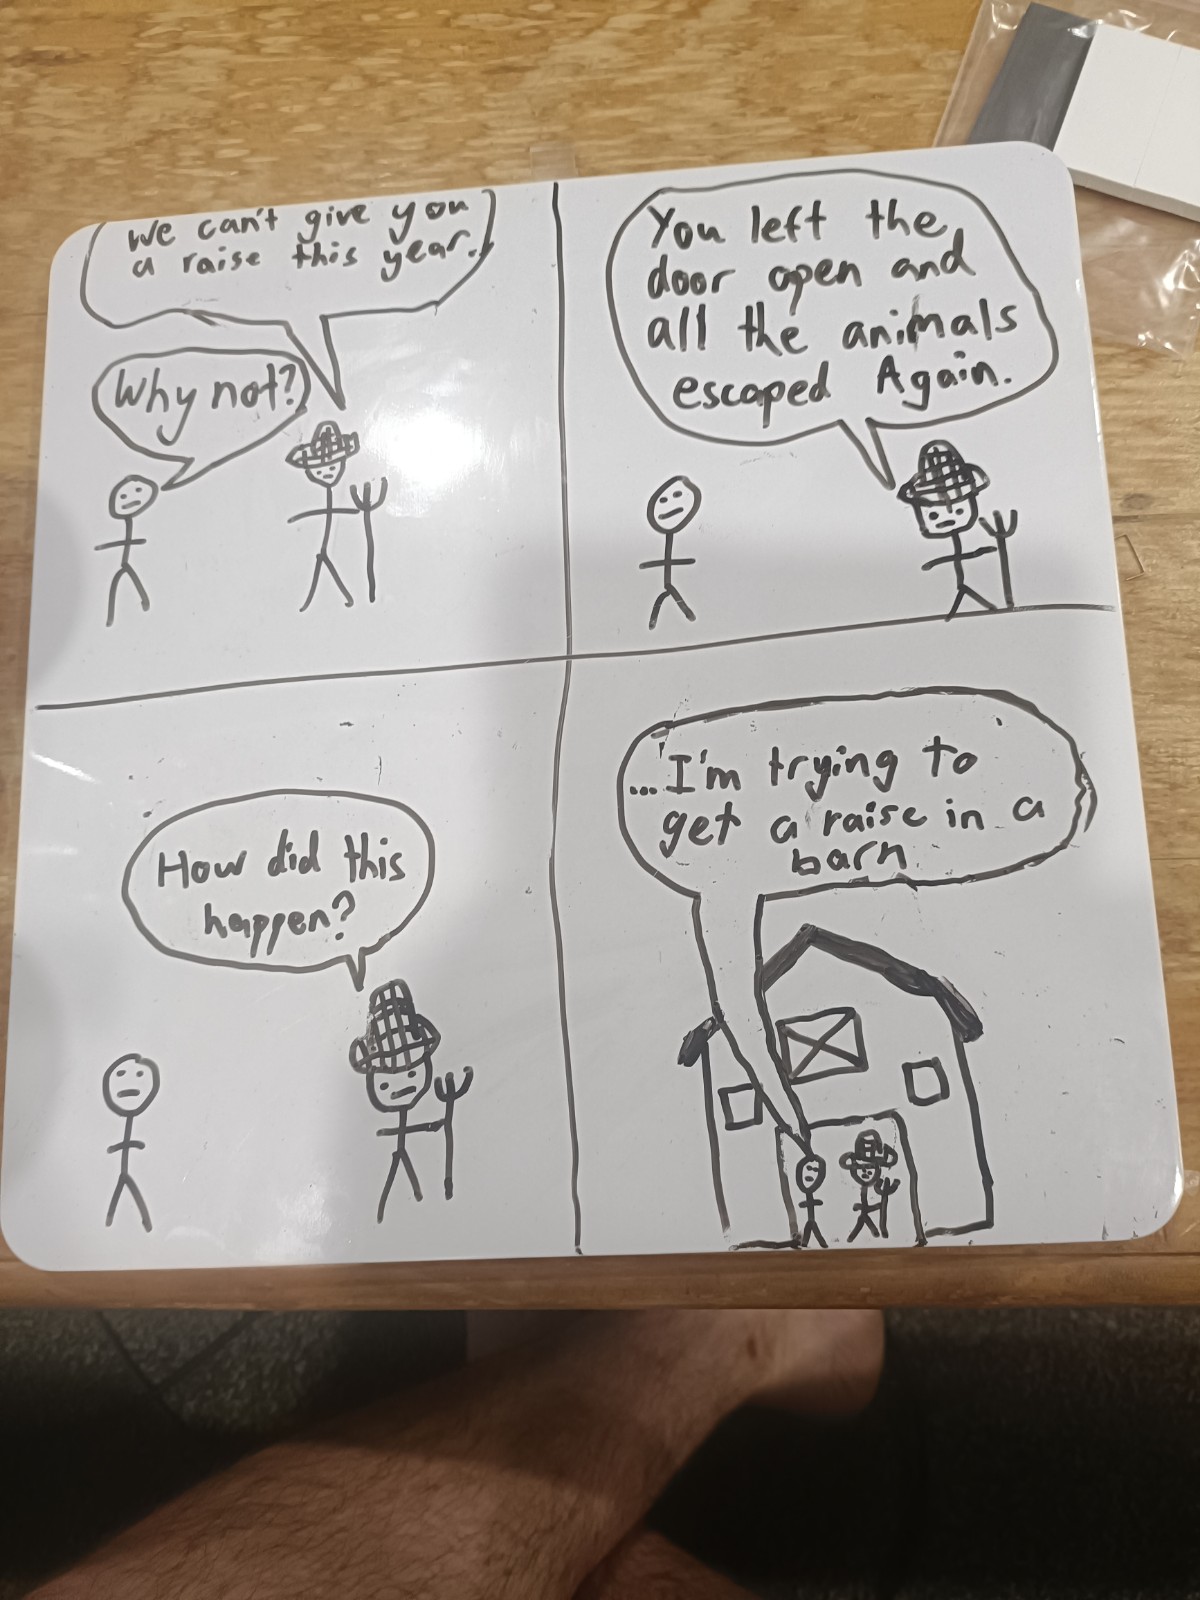 We can't give you
a raise this year.
Why not?
You left the
door open and
all the animals
escaped Again.
How did this
happen?
...I'm trying to
get a raise in a
barn